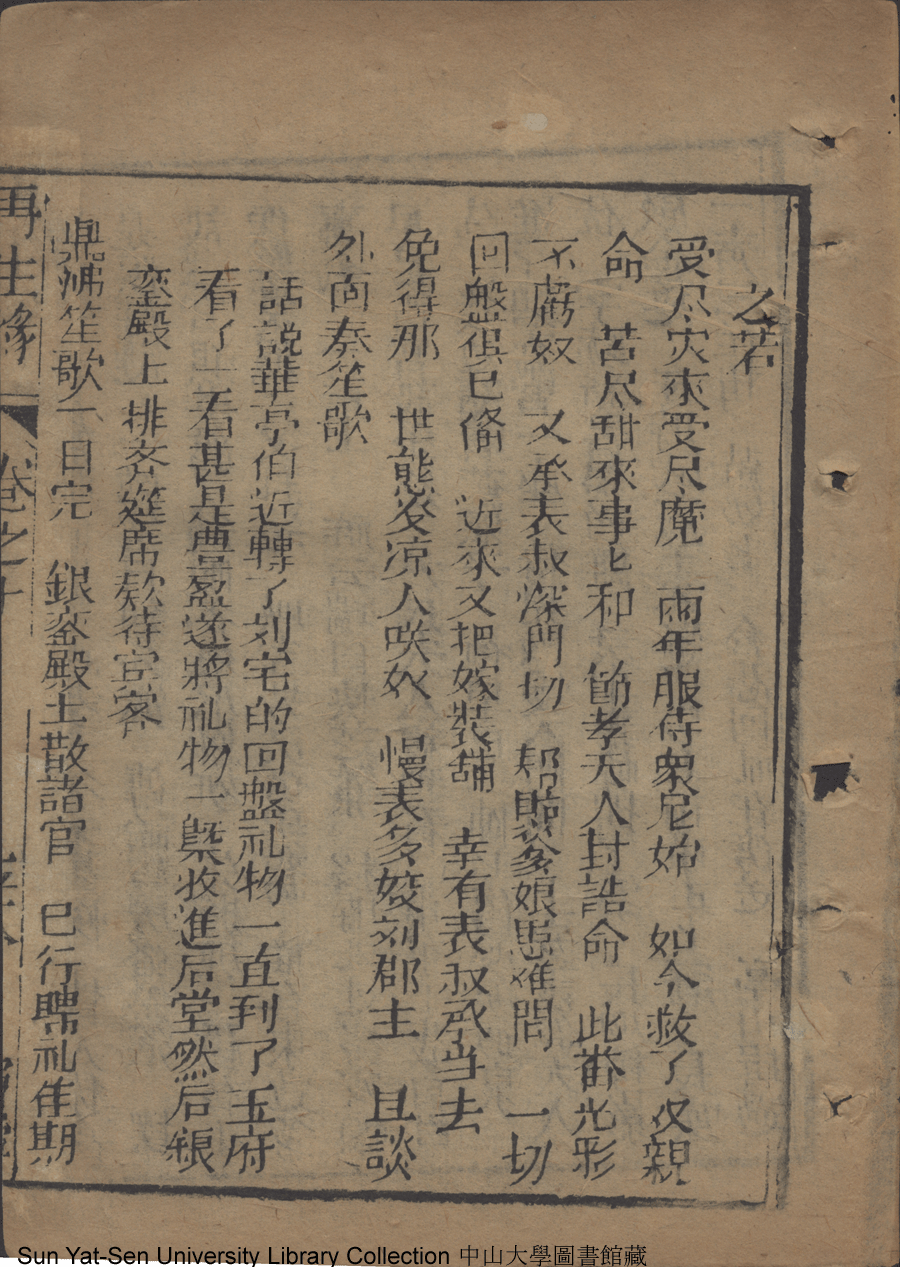 之若
受尽灾來受尽魔 兩年服侍衆尼姑 如今救了父親
命 苦尽甜來事匕和 節孝夫人封誥命 此番光彩
不虧奴 又承表叔深門切 帮照爹娘患难間 一切
回盤俱已俻 近來又把嫁裝鋪 幸有表叔承当去
免得那 世態炎凉人咲奴 慢表多姣刘郡主 且談
外面奏笙歌
話說華亭伯近轉了刘宅的回盤礼物一直到了王府
看了一看甚是豊盈遂將礼物一槩收進后堂然后銀
銮殿上排齐筵席欵待宾客
鼎沸笙歌一日完 銀銮殿上散諸官 已行聘礼隹期
再生緣 卷之十
Sun Yat-Sen University Library Collection 中山大學圖書館藏